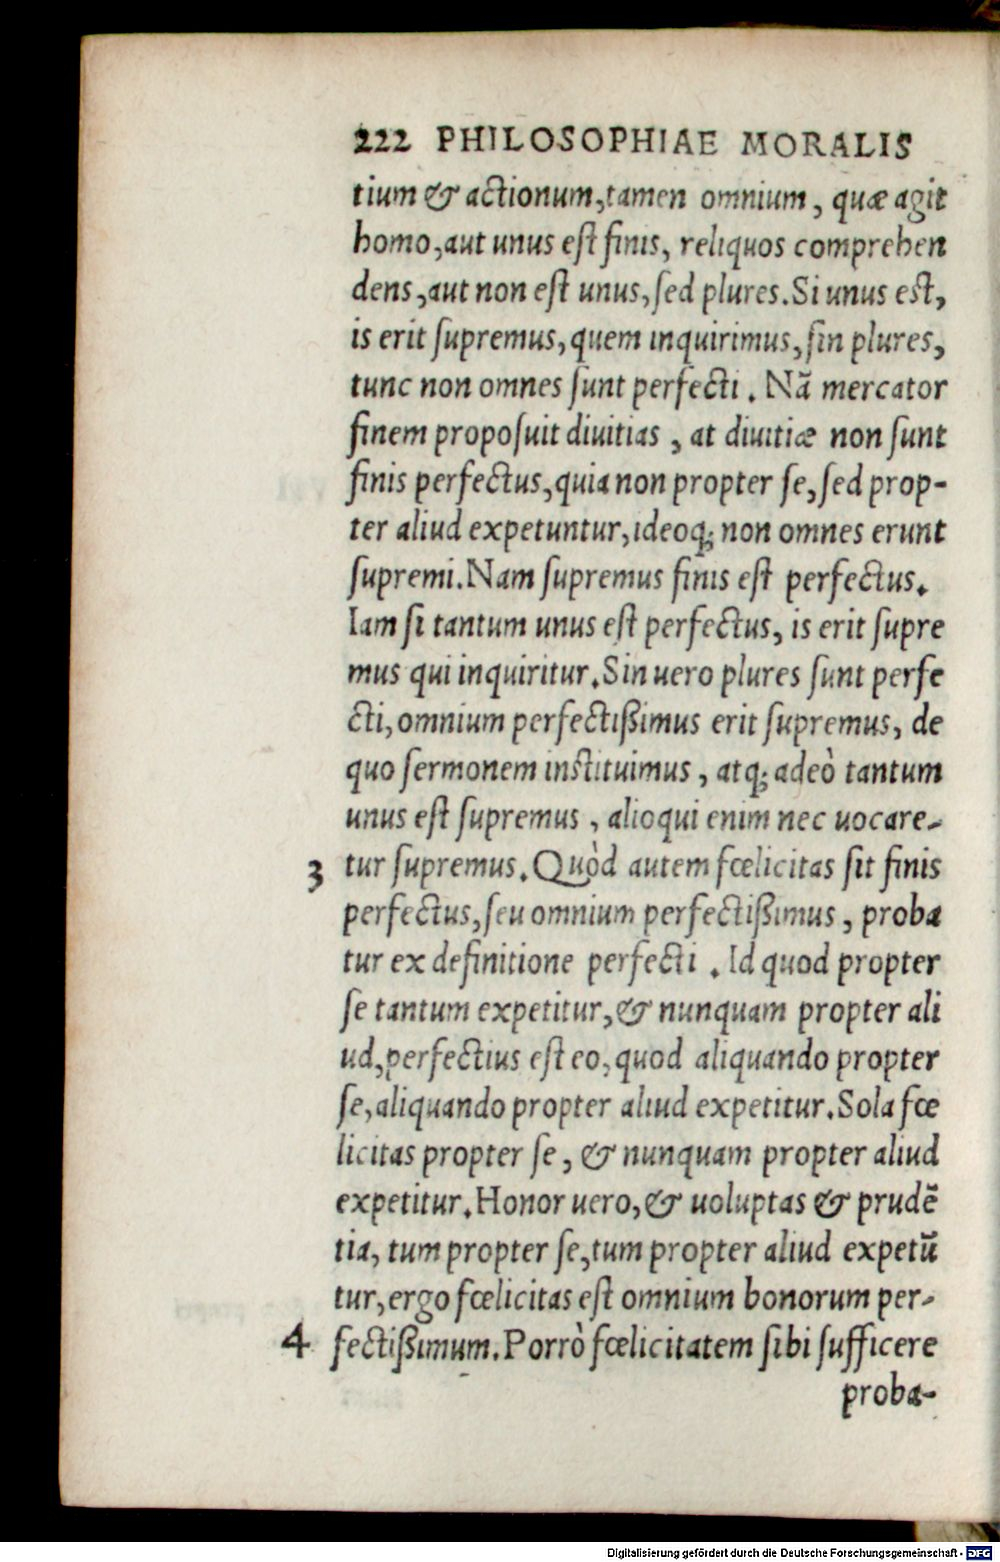 222 PHILOSOPHIAE MORALIS
tium & actionum, tamen omnium, quæ agit
homo, aut unus eſt finis, reliquos comprehen
dens, aut non eſt unus, ſed plures. Si unus eſt,
is erit ſupremus, quem inquirimus, ſin plures,
tunc non omnes ſunt perfecti. Nā mercator
finem propoſuit diuitias, at diuitiæ non ſunt
finis perfectus, quia non propter ſe, ſed prop-
ter aliud expetuntur, ideoq; non omnes erunt
ſupremi. Nam ſupremus finis eſt perfectus.
Iam ſi tantum unus eſt perfectus, is erit ſupre
mus qui inquiritur. Sin uero plures ſunt perfe
cti, omnium perfectißimus erit ſupremus, de
quo ſermonem inſtituimus, atq; adeò tantum
unus eſt ſupremus, alioqui enim nec uocare-
3 tur ſupremus. Quòd autem fœlicitas ſit finis
perfectus, ſeu omnium perfectißimus, proba
tur ex definitione perfecti. Id quod propter
ſe tantum expetitur, & nunquam propter ali
ud, perfectius eſt eo, quod aliquando propter
ſe, aliquando propter aliud expetitur. Sola fœ
licitas propter ſe, & nunquam propter aliud
expetitur. Honor uero, & uoluptas & prudē
tia, tum propter ſe, tum propter aliud expetū
tur, ergo fœlicitas eſt omnium bonorum per-
4 fectißimum. Porrò fœlicitatem ſibi ſufficere
proba-
Digitalisierung gefördert durch die Deutsche Forschungsgemeinschaft - DFG